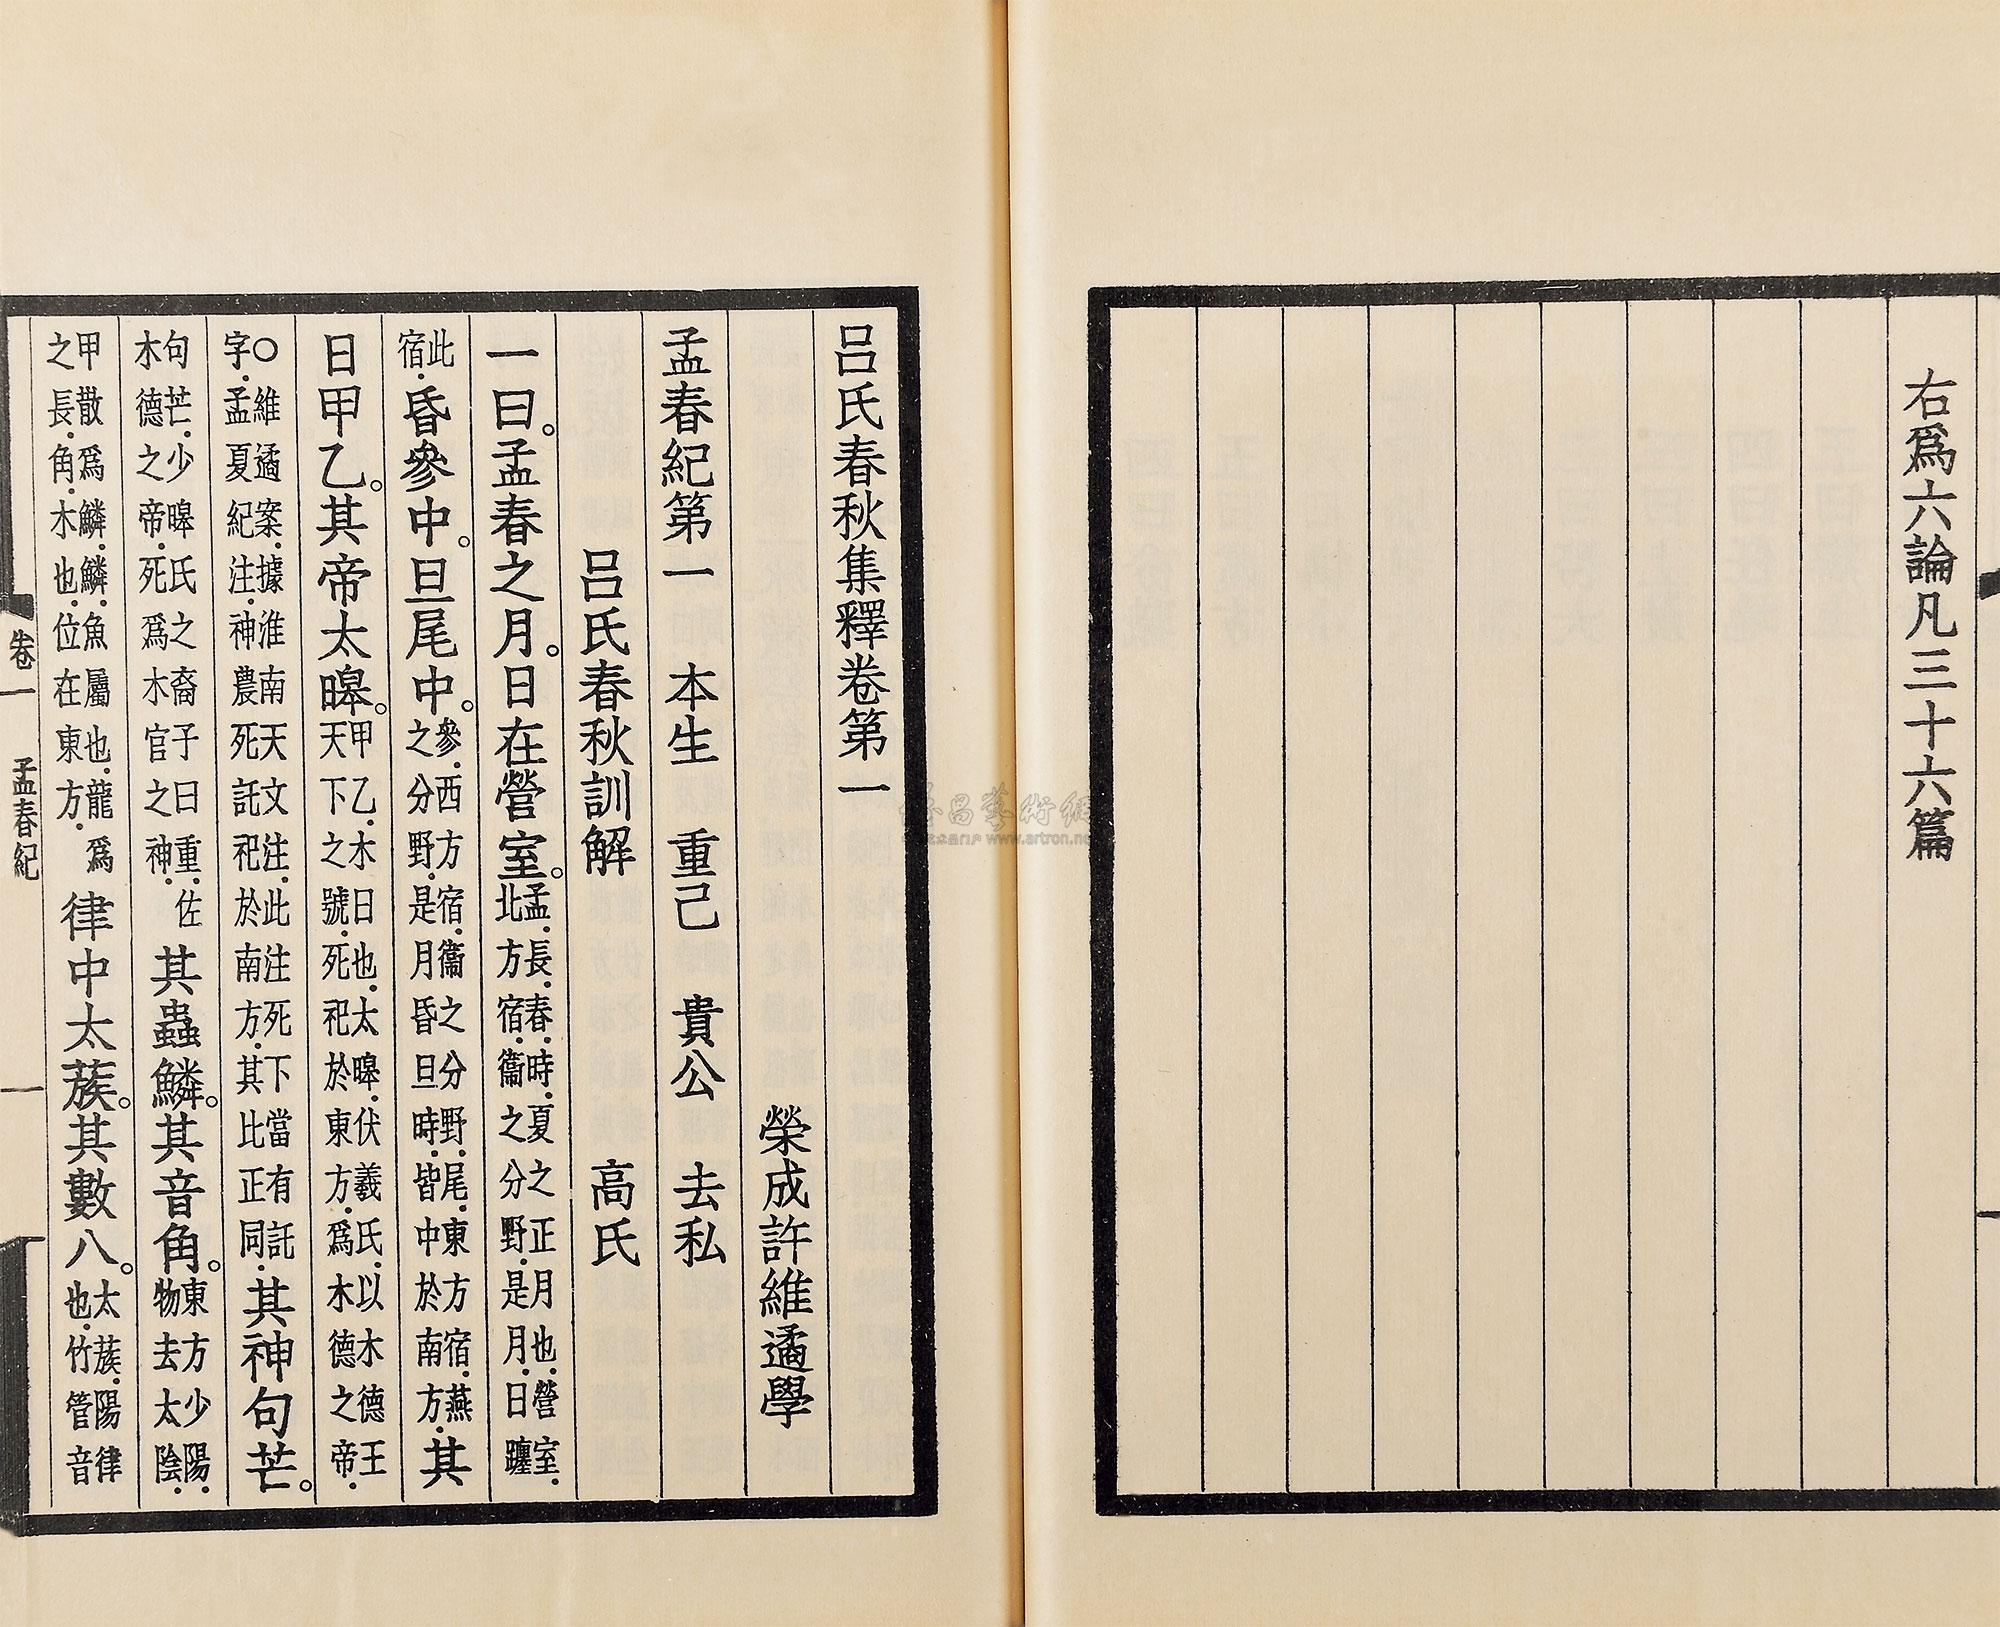 右爲六論凡三十六篇
呂氏春秋集釋卷第一
榮成許維遹學
孟春紀第一　本生　重己　貴公　去私
呂氏春秋訓解　高氏
一曰。孟春之月。日在營室。孟.長.春.時.夏之正月也.營室.北方宿.衞之分野.是月.日躔
此宿.昏參中。旦尾中。參.西方宿.衞之分野.尾.東方宿.燕之分野.是月昏旦時.皆中於南方.其
日甲乙。其帝太皞。甲乙.木日也.太皞.伏羲氏.以木德王天下之號.死祀於東方.爲木德之帝.
○維遹案.據淮南天文注.此注死下當有託字.孟夏紀注.神農死託祀於南方.其比正同.其神句芒。
句芒.少皞氏之裔子曰重.佐木德之帝.死爲木官之神.其蟲鱗。其音角。東方少陽.物去太陰.
甲散爲鱗.鱗.魚屬也.龍爲之長.角.木也.位在東方.律中太蔟。其數八。太蔟.陽律也.竹管音
卷一　孟春紀　一
雅昌藝術網
www.artron.net